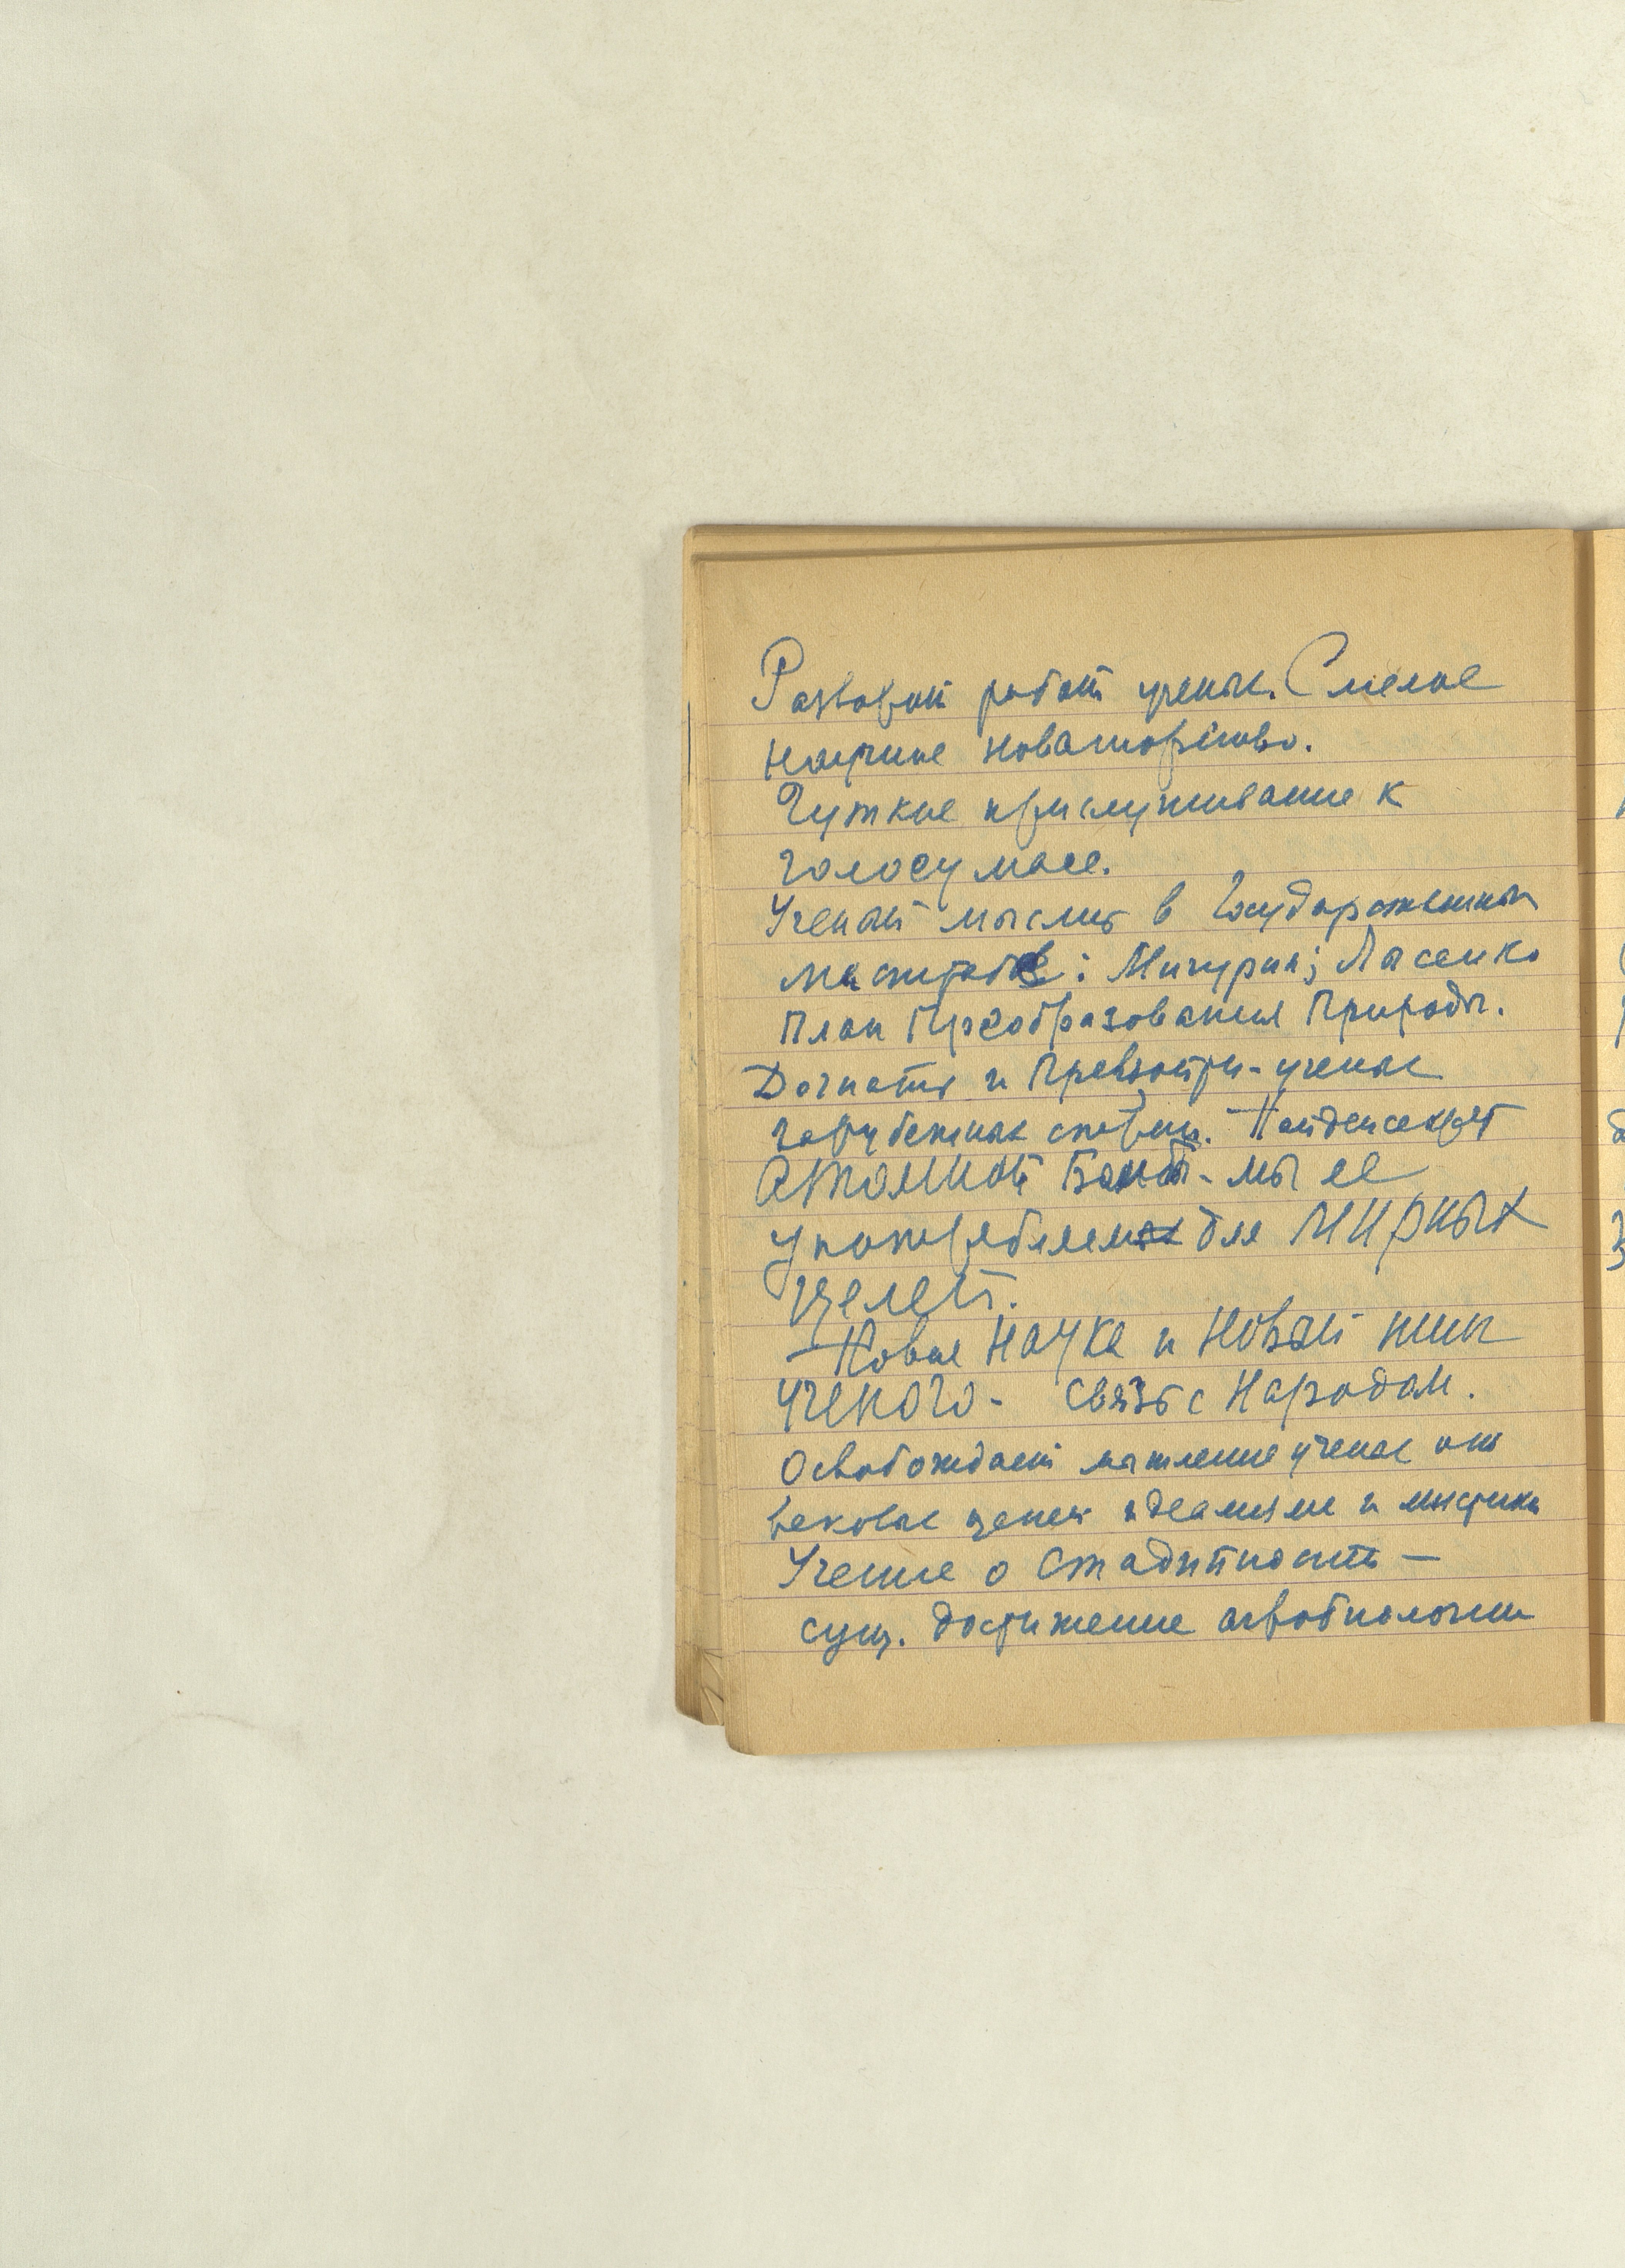 Разворот работ ученых. Смелое
научное новаторство.
Чуткое прислушивание к
голосу масс.
Ученый мыслит в Государственных
масштабе: Мичурин; Лысенко
План Преобразования Природы.
Догнать и Превзойти - ученых
зарубежных стран. Найден секрет
Атомной Бомбы - мы ее
употребляем для МИРНЫХ
целей.
Новая Наука и Новый тип
Ученого - связь с Народом.
Освобождает мышление ученых от
вековых цепей идеализма и мистики
Учение о Стадийности —
сущ. достижение агробиологии